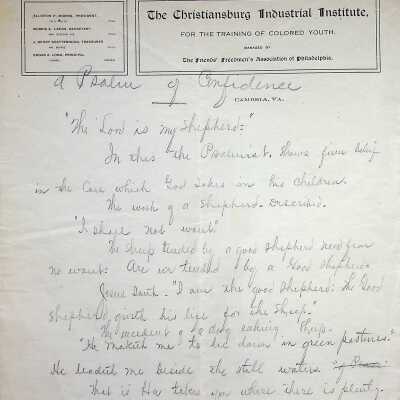 ELLISTON P. MORRIS, PRESIDENT,
SECRETARY
J. HENRY SCATTERGOOD, TREASURER
EDGAR A. LONG, PRINCIPAL
The Christiansburg Industrial Institute,
FOR THE TRAINING OF COLORED YOUTH.
MANAGED BY
The Friends' Freedmen's Association of Philadelphia.
A Psalm of Confidence
CAMBRIA, VA.
"The Lord is my Shepherd:"
In this the Psalmist. Shows firm belief
in the Care which God takes in his Children.
The work of a Shepherd. Described.
"I shall not want."
The Sheep tended by a good Shepherd need fear
no want. Are we tended by a Good Shepherd
Jesus Saith. "I am the good Shepherd: the Good
Shepherd giveth his life for the Sheep."
The incident of a dog eating Sheep.
"He maketh me to lie down in green pastures."
He leadeth me beside the still waters
That is He takes you where there is plenty.